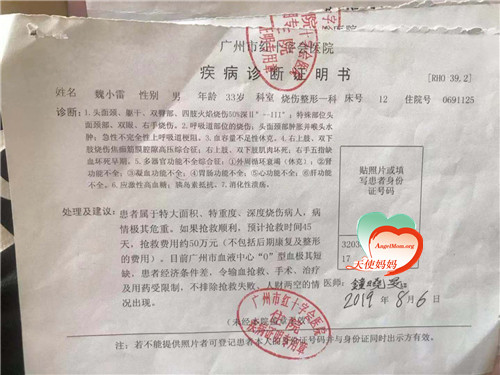 广州市红十字会医院
疾病诊断证明书
[RHO 39.2]
姓名 魏小雷 性别 男 年龄 33岁 科室 烧伤整形一科 床号 12 住院号 0691125
诊断:1.头面颈、躯干、双臀部、四肢火焰烧伤50%深II°--III°;特殊部位头
面颈部、双眼、右手烧伤。2.呼吸道部位的烧伤;头面颈部肿胀并喉头水
肿;急性不完全性上呼吸道梗阻。3.血容量不足性休克。4.右上肢、双下
肢烧伤焦痂筋膜腔隔高压综合征;右上肢、双下肢肌肉坏死;右手五指缺
血坏死早期。5.多器官功能不全综合征:①外周循环衰竭(休克);②肾
功能不全;③凝血功能不全;④胃肠功能不全;⑤心功能不全;⑥肝功能
不全。6.应激性高血糖;胰岛素抵抗。7.消化性溃疡。
贴照片或填
写患者身份
证号码
处理及建议:患者属于特大面积、特重度、深度烧伤病人,病
情极其危重。如果抢救顺利,预计抢救时间45
天,抢救费用约50万元(不包括后期康复及整形
的费用)。目前广州市血液中心“O”型血极其短
缺,患者经济条件差,令输血抢救、手术、治疗
及用药受限制,不排除抢救失败,人财两空的情
况出现。
3203
17
AngelMom.org
天使妈妈
医师:
2019年8月6日
广州市红十字会医院
住院
疾病证明专用章
注:若不能提供照片者可登记患者本人的身份证号码并与身份证同时出示方有效。